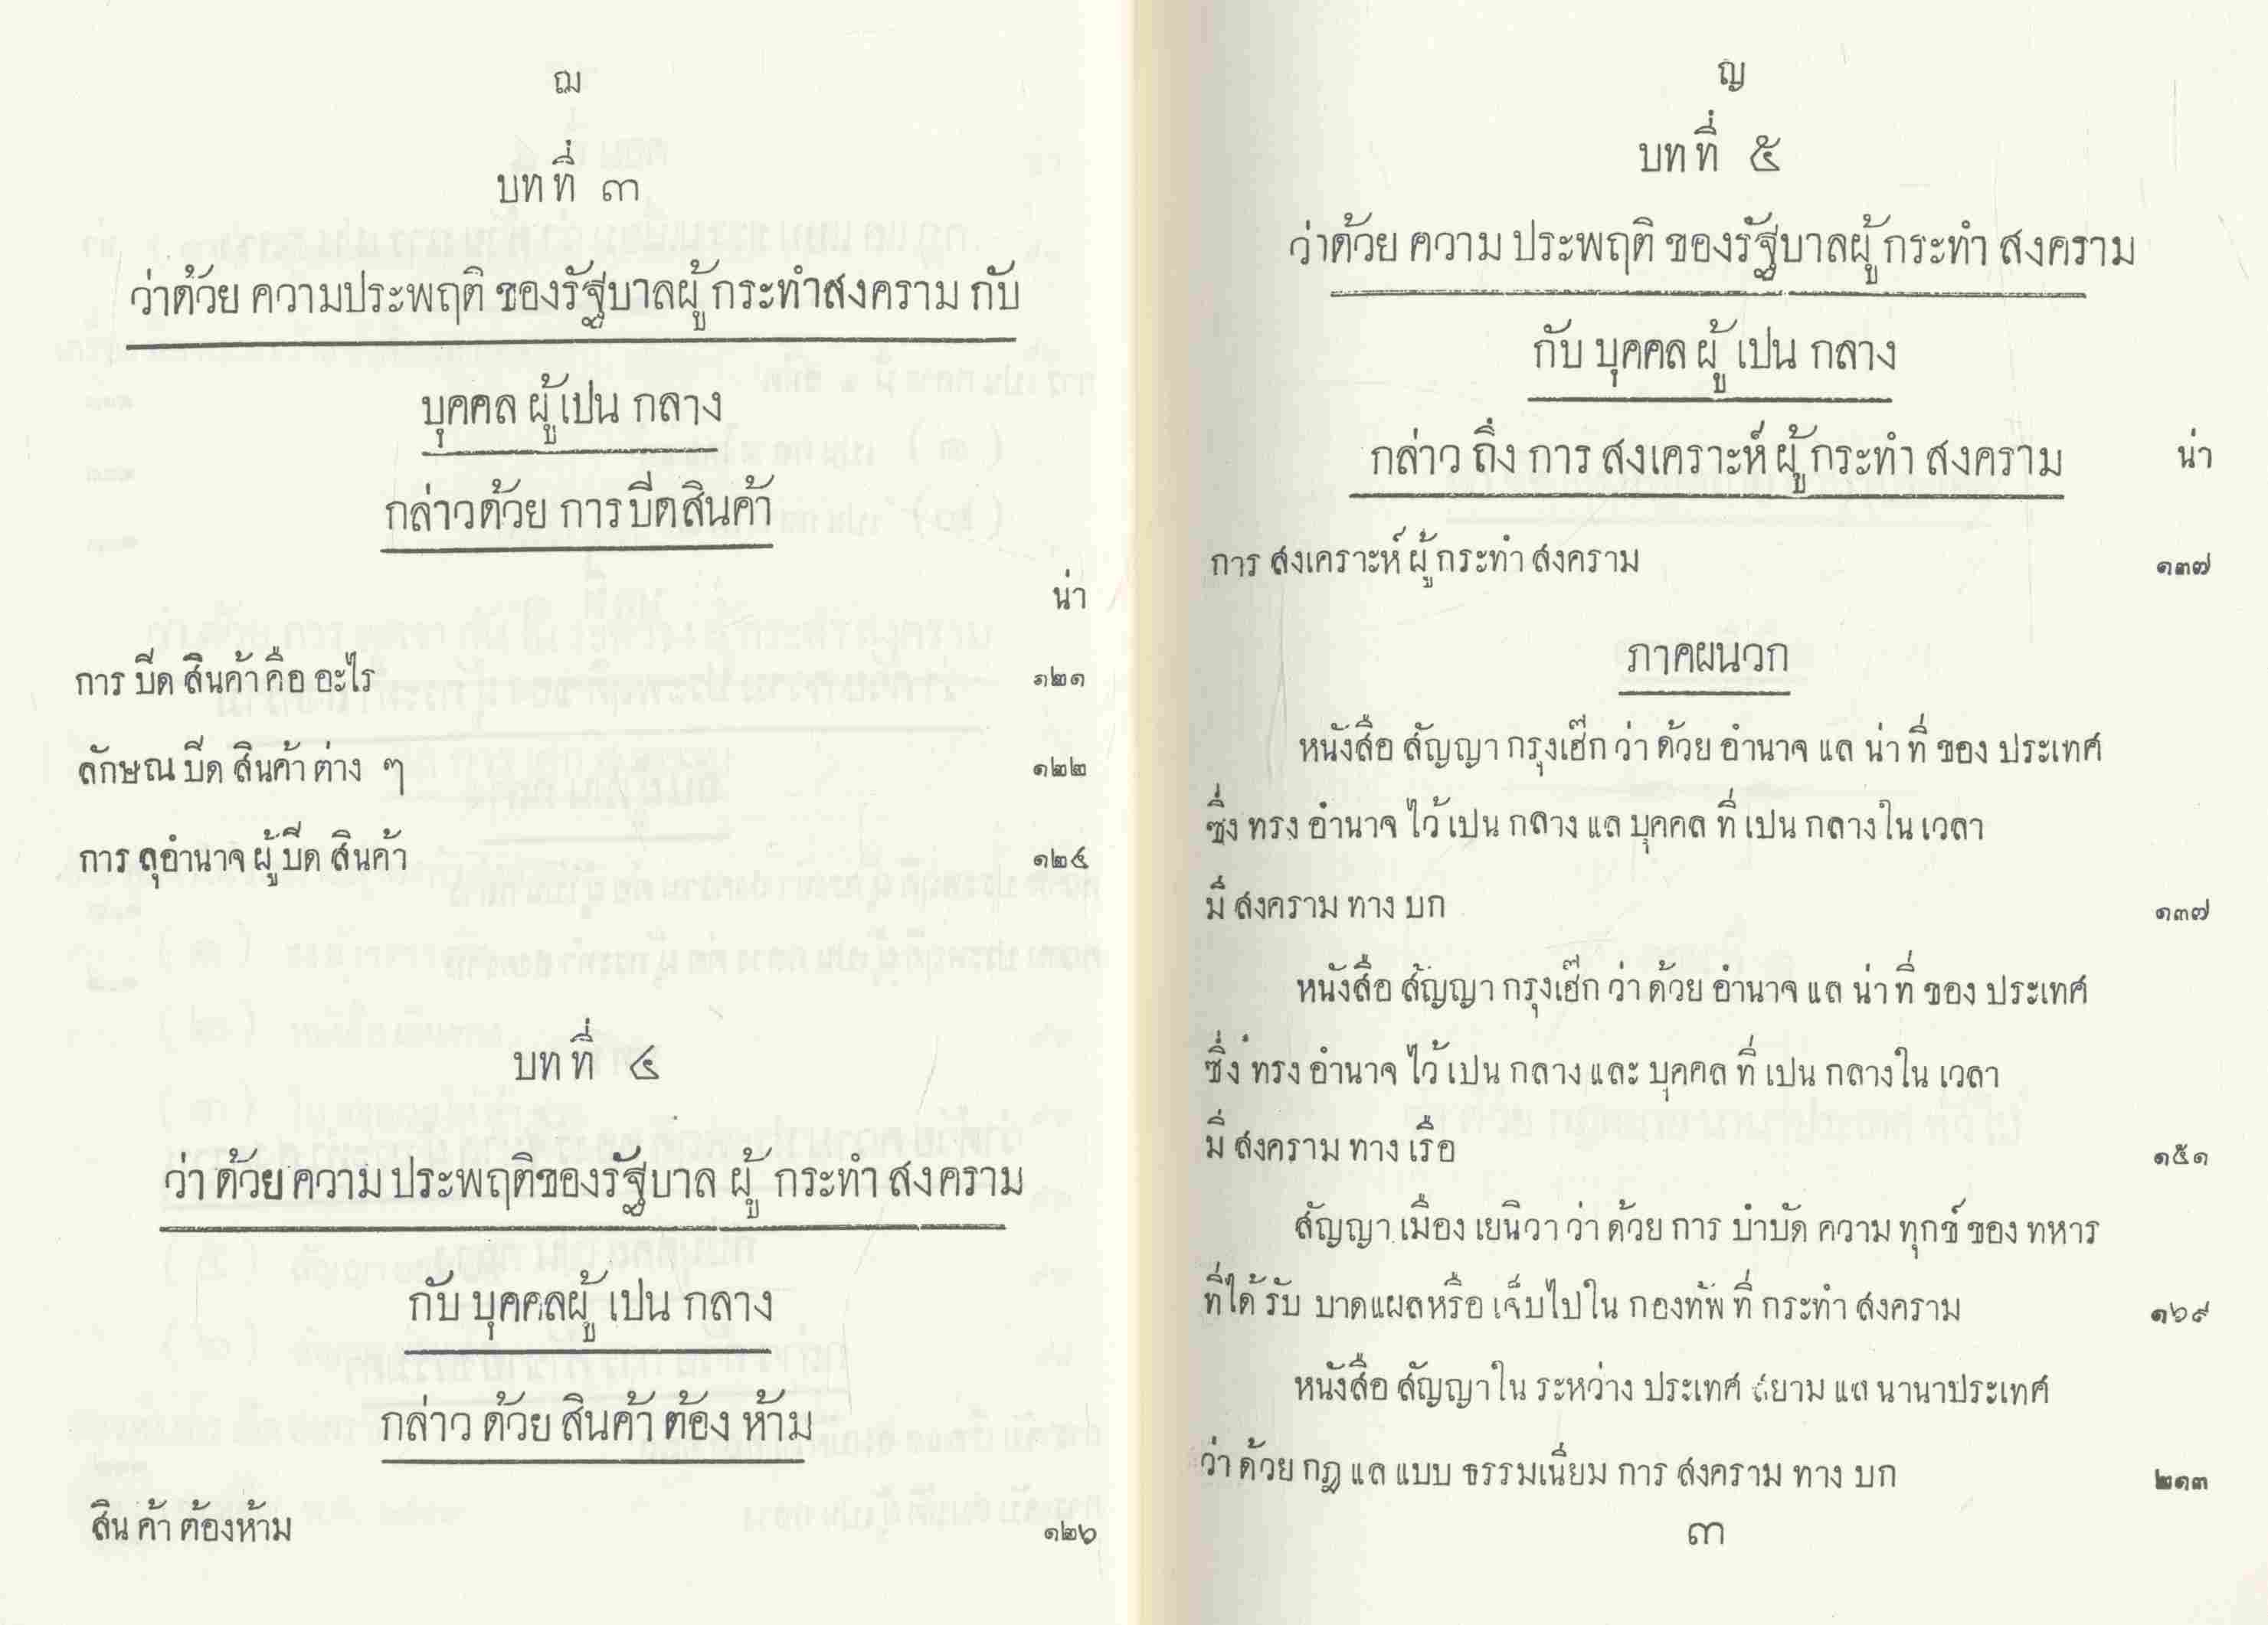 ฌ
บทที่ ๓
ว่าด้วย ความประพฤติ ของรัฐบาลผู้ กระทำสงคราม กับ
บุคคล ผู้เปน กลาง
กล่าวด้วย การบีดสินค้า
น่า
การ บีด สินค้า คือ อะไร ๑๒๑
ลักษณ บีด สินค้า ต่าง ๆ ๑๒๒
การ ลุอำนาจ ผู้ บีด สินค้า ๑๒๔
บทที่ ๔
ว่า ด้วย ความ ประพฤติของรัฐบาล ผู้ กระทำ สงคราม
กับ บุคคลผู้ เปน กลาง
กล่าว ด้วย สินค้า ต้อง ห้าม
สิน ค้า ต้องห้าม ๑๒๖
ญ
บทที่ ๕
ว่าด้วย ความ ประพฤติ ของรัฐบาลผู้ กระทำ สงคราม
กับ บุคคล ผู้ เปน กลาง
กล่าว ถึง การ สงเคราะห์ ผู้ กระทำ สงคราม น่า
การ สงเคราะห์ ผู้ กระทำ สงคราม ๑๓๗
ภาคผนวก
หนังสือ สัญญา กรุงเฮ๊ก ว่า ด้วย อำนาจ แล น่า ที่ ของ ประเทศ
ซึ่ง ทรง อำนาจ ไว้ เปน กลาง แล บุคคล ที่ เปน กลางใน เวลา
มี สงคราม ทาง บก ๑๓๗
หนังสือ สัญญา กรุงเฮ๊ก ว่า ด้วย อำนาจ แล น่า ที่ ของ ประเทศ
ซึ่ง ทรง อำนาจ ไว้ เปน กลาง และ บุคคล ที่ เปน กลางใน เวลา
มี สงคราม ทาง เรือ ๑๕๑
สัญญา เมือง เยนิวา ว่า ด้วย การ บำบัด ความ ทุกข์ ของ ทหาร
ที่ได้ รับ บาดแผลหรือ เจ็บไปใน กองทัพ ที่ กระทำ สงคราม ๑๖๙
หนังสือ สัญญาใน ระหว่าง ประเทศ สยาม แล นานาประเทศ
ว่า ด้วย กฎ แล แบบ ธรรมเนียม การ สงคราม ทาง บก ๒๑๓
๓